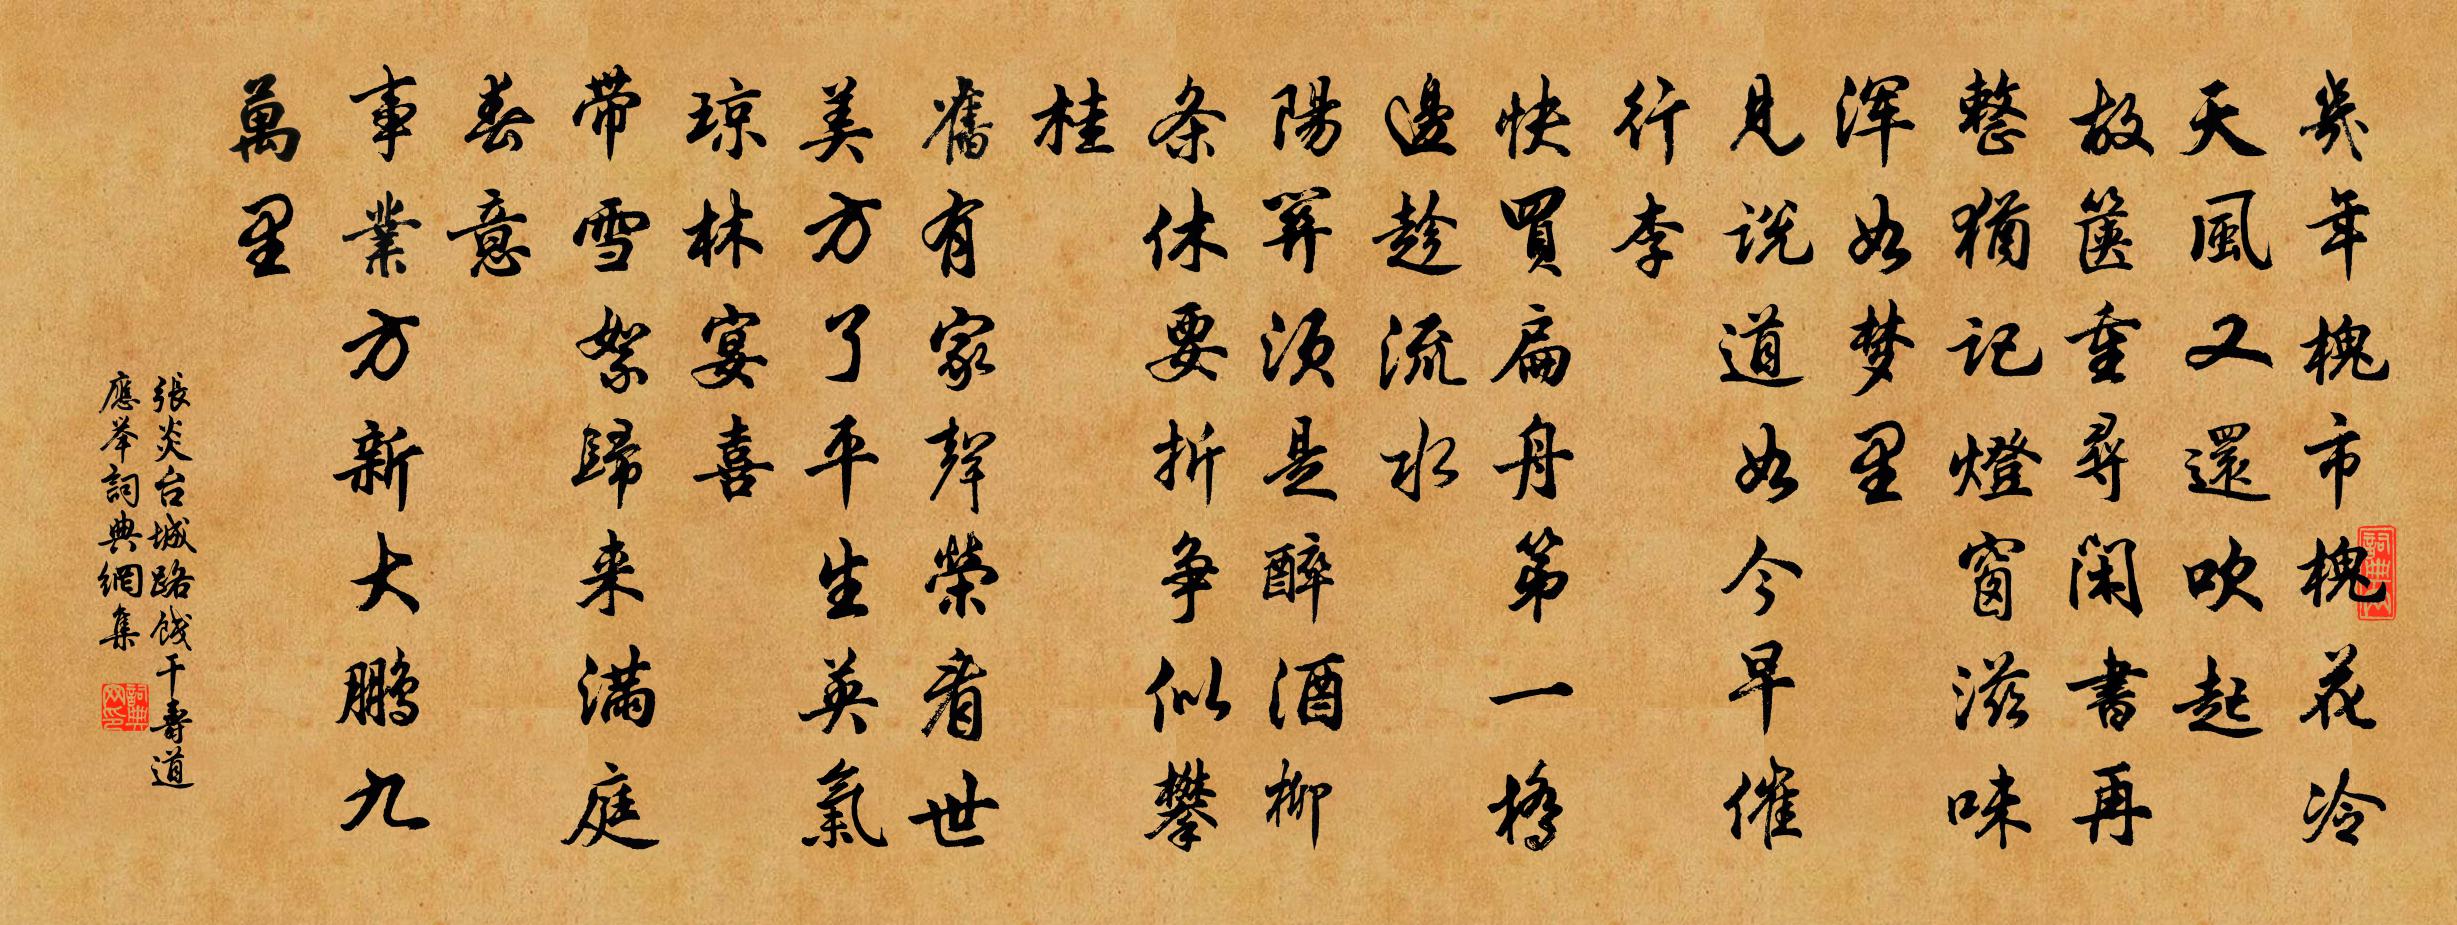 幾年槐市槐花冷
天風又還吹起
故篋重尋閑書再
整猶記燈窗滋味
浑如梦里
見説道如今早催
行李
快買扁舟第一橋
邊趁流水
陽關須是醉酒柳
条休要折争似攀
桂
舊有家聲榮看世
美方了平生英氣
琼林宴喜
带雪絮歸来满庭
春意
事業方新大鵬九
萬里
張炎台城路餞干壽道
應举詞典網集
詞典网
詞典网印